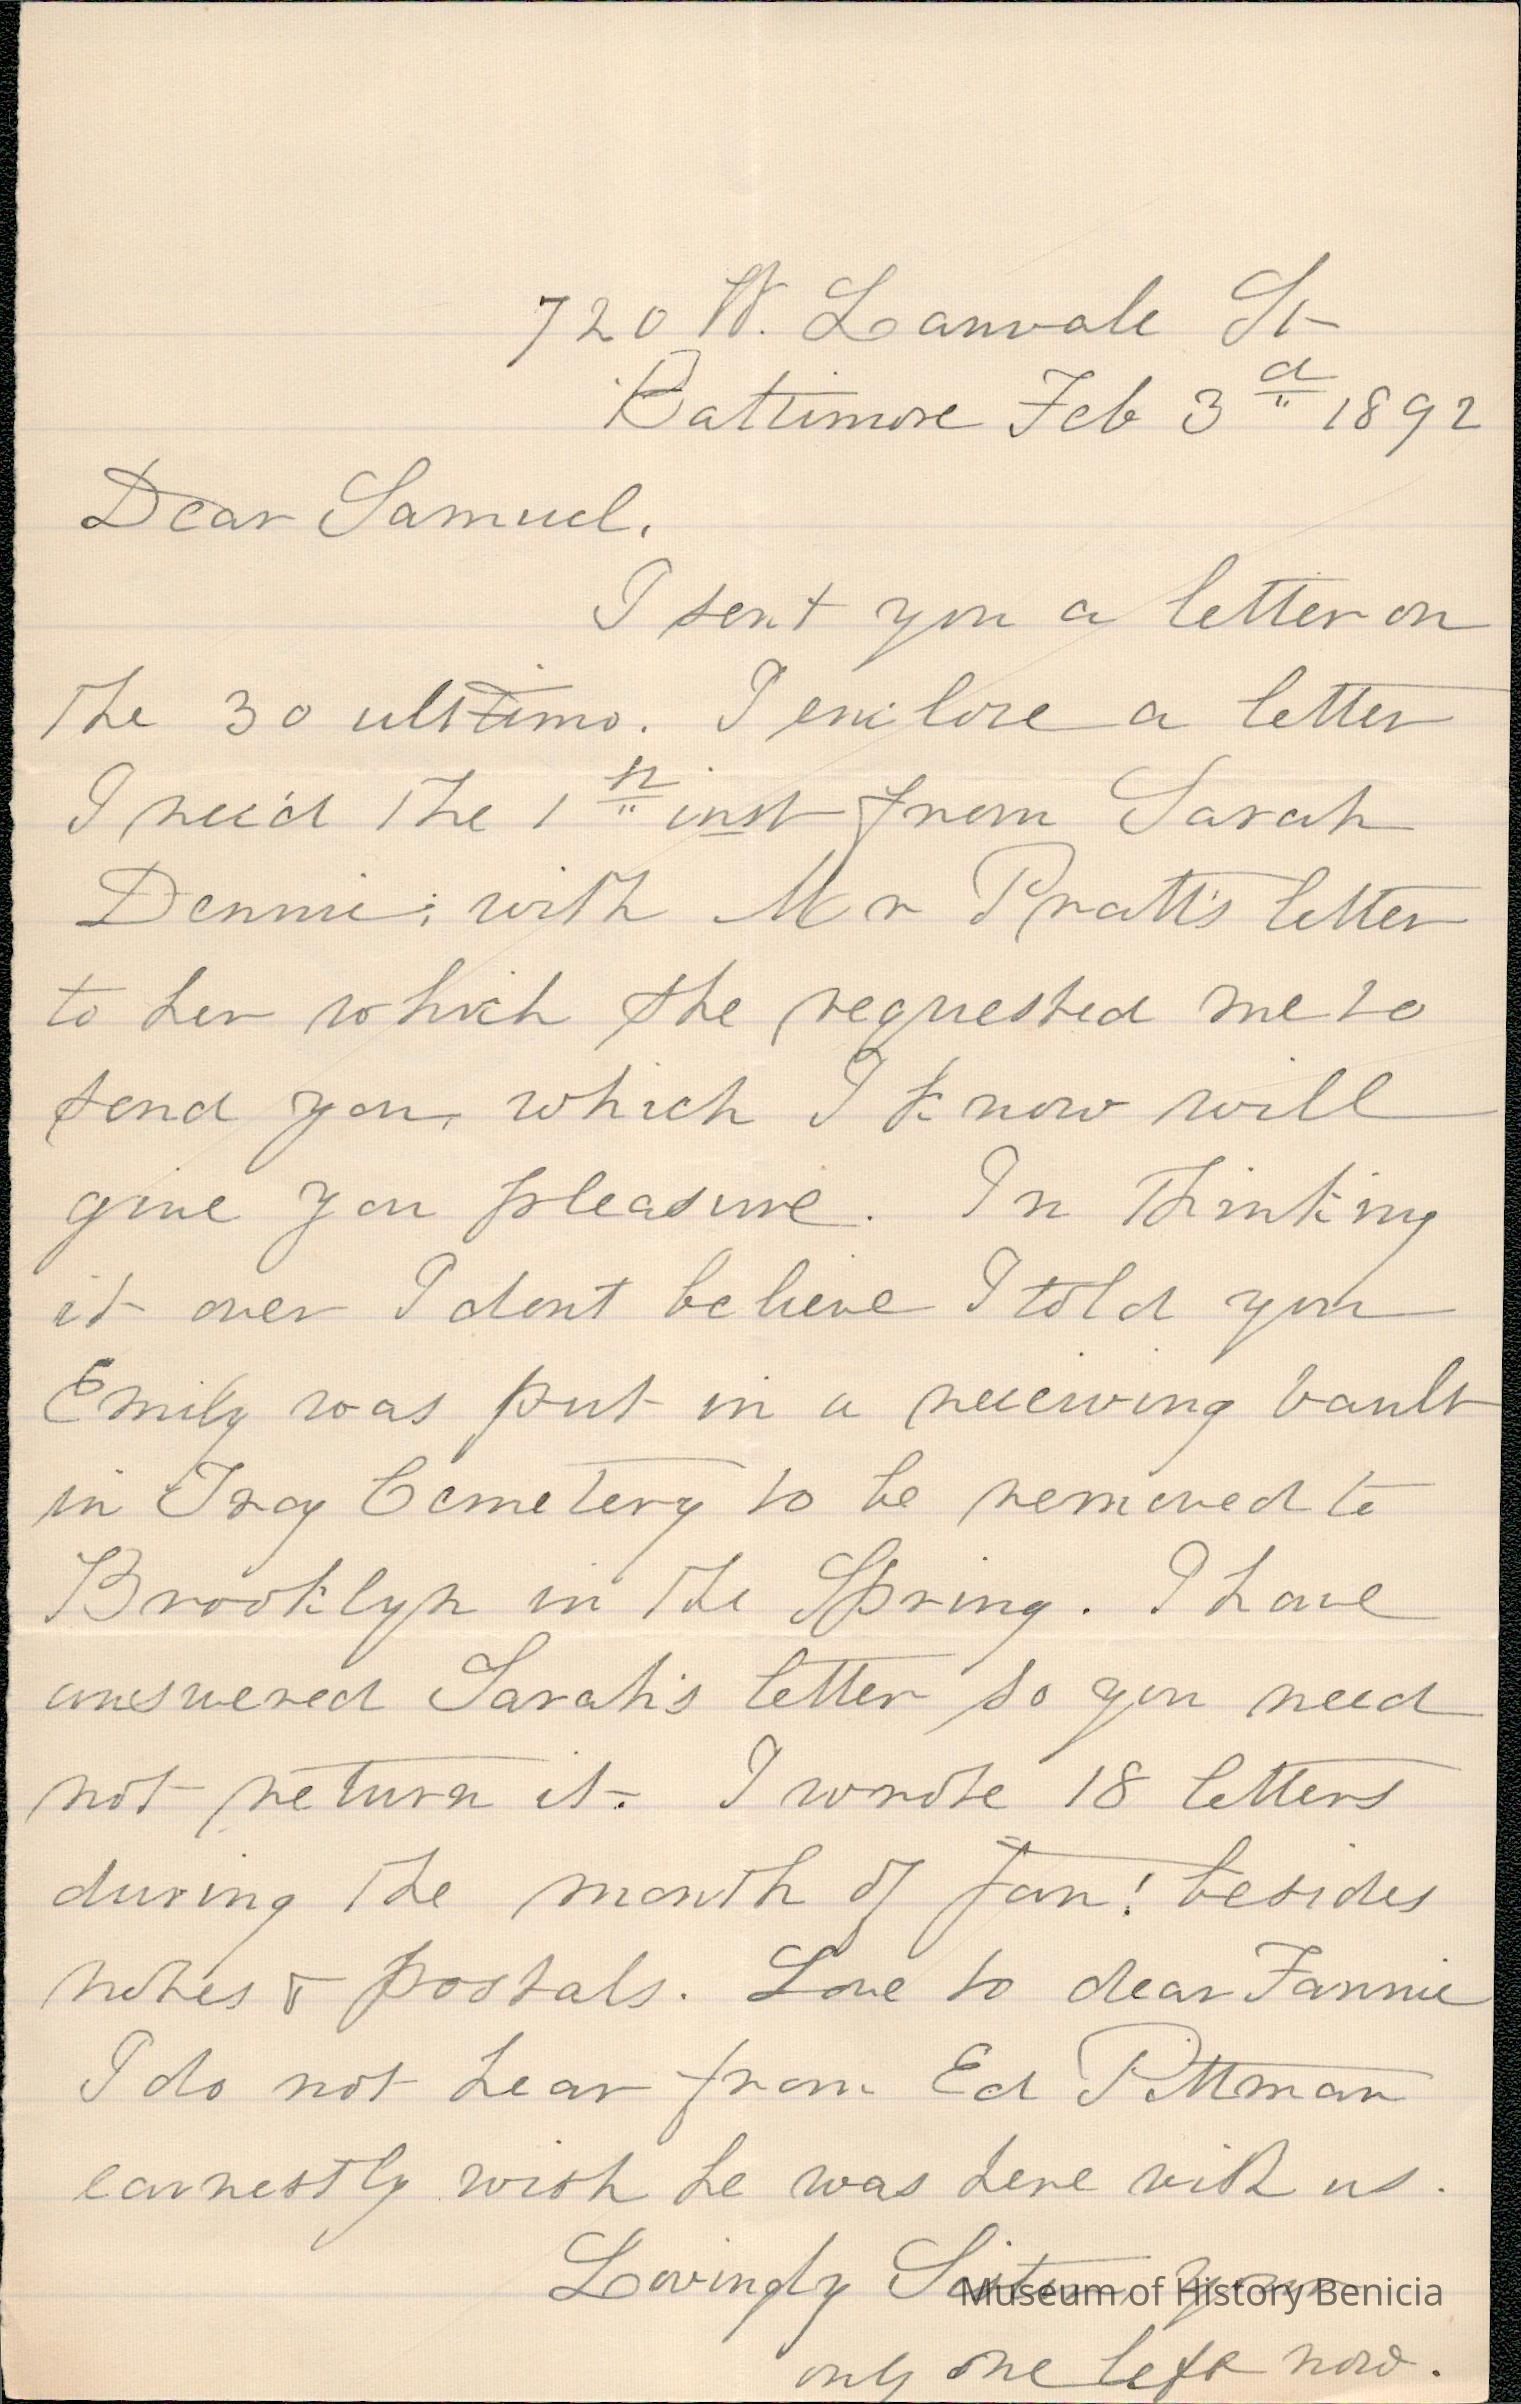 720 W. Lanvale St
Baltimore Feb 3d 1892
Dear Samuel.
I sent you a letter on
the 30 ultimo. I enclose a letter
I rec'd the 1st inst from Sarah
Dennie; with Mr Pratt's letter
to her which she requested me to
send you, which I know will
give you pleasure. In thinking
it over I dont believe I told you
Emily was put in a receiving vault
in Troy Cemetery to be removed to
Brooklyn in the Spring. I have
answered Sarah's letter so you need
not return it. I wrote 18 letters
during the month of Jan! besides
notes & postals. Love to dear Fannie
I do not hear from Ed Pittman
earnestly wish he was here with us.
Lovingly Sister your
only one left now.
Museum of History Benicia